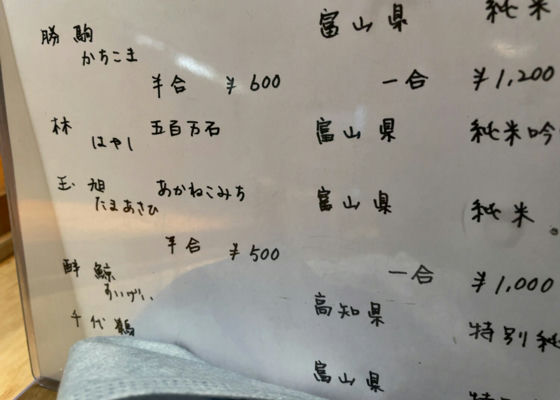 勝駒 富山県 純米
かちこま
半合 ¥600 一合 ¥1,200
林 五百万石 富山県 純米吟
はやし
玉旭 あかねこみち 富山県 純米
たまあさひ
半合 ¥500 一合 ¥1,000
酔鯨 高知県 特別純
すいげい
千代鶴 富山県